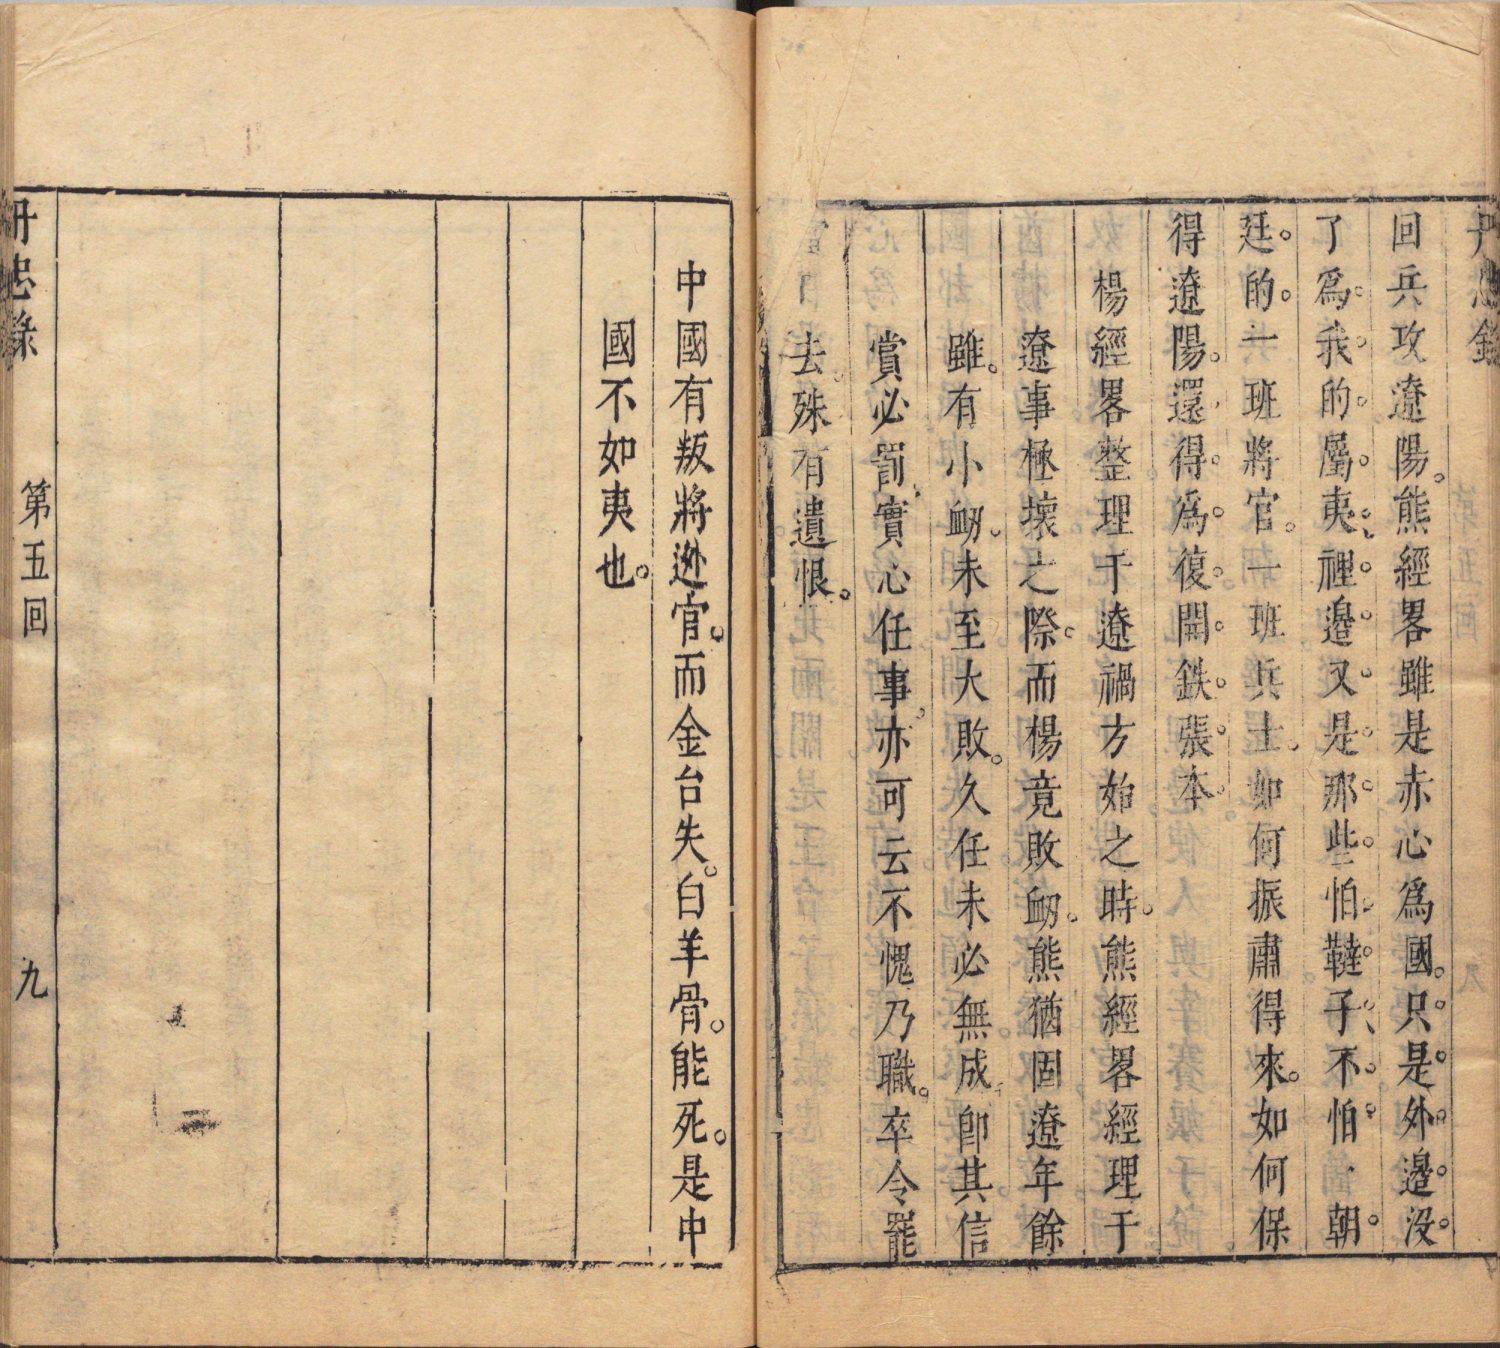 回兵攻遼陽。熊經畧雖是赤心爲國。只是外邊没
了爲我的屬夷。裡邊又是那些怕韃子。不怕朝
廷的。一班將官。一班兵士。如何振肅得來。如何保
得遼陽。還得爲復開鉄張本。
楊經畧整理于遼禍方始之時。熊經畧經理于
遼事極壞之際。而楊竟敗衂。熊猶固遼年餘
雖有小衂。未至大敗。久任未必無成。卽其信
賞必罰。實心任事。亦可云不愧乃職。卒令罷
去。殊有遺恨。
中國有叛將逃官。而金台失。白羊骨。能死。是中
國不如夷也。
丹忠錄
第五回
九